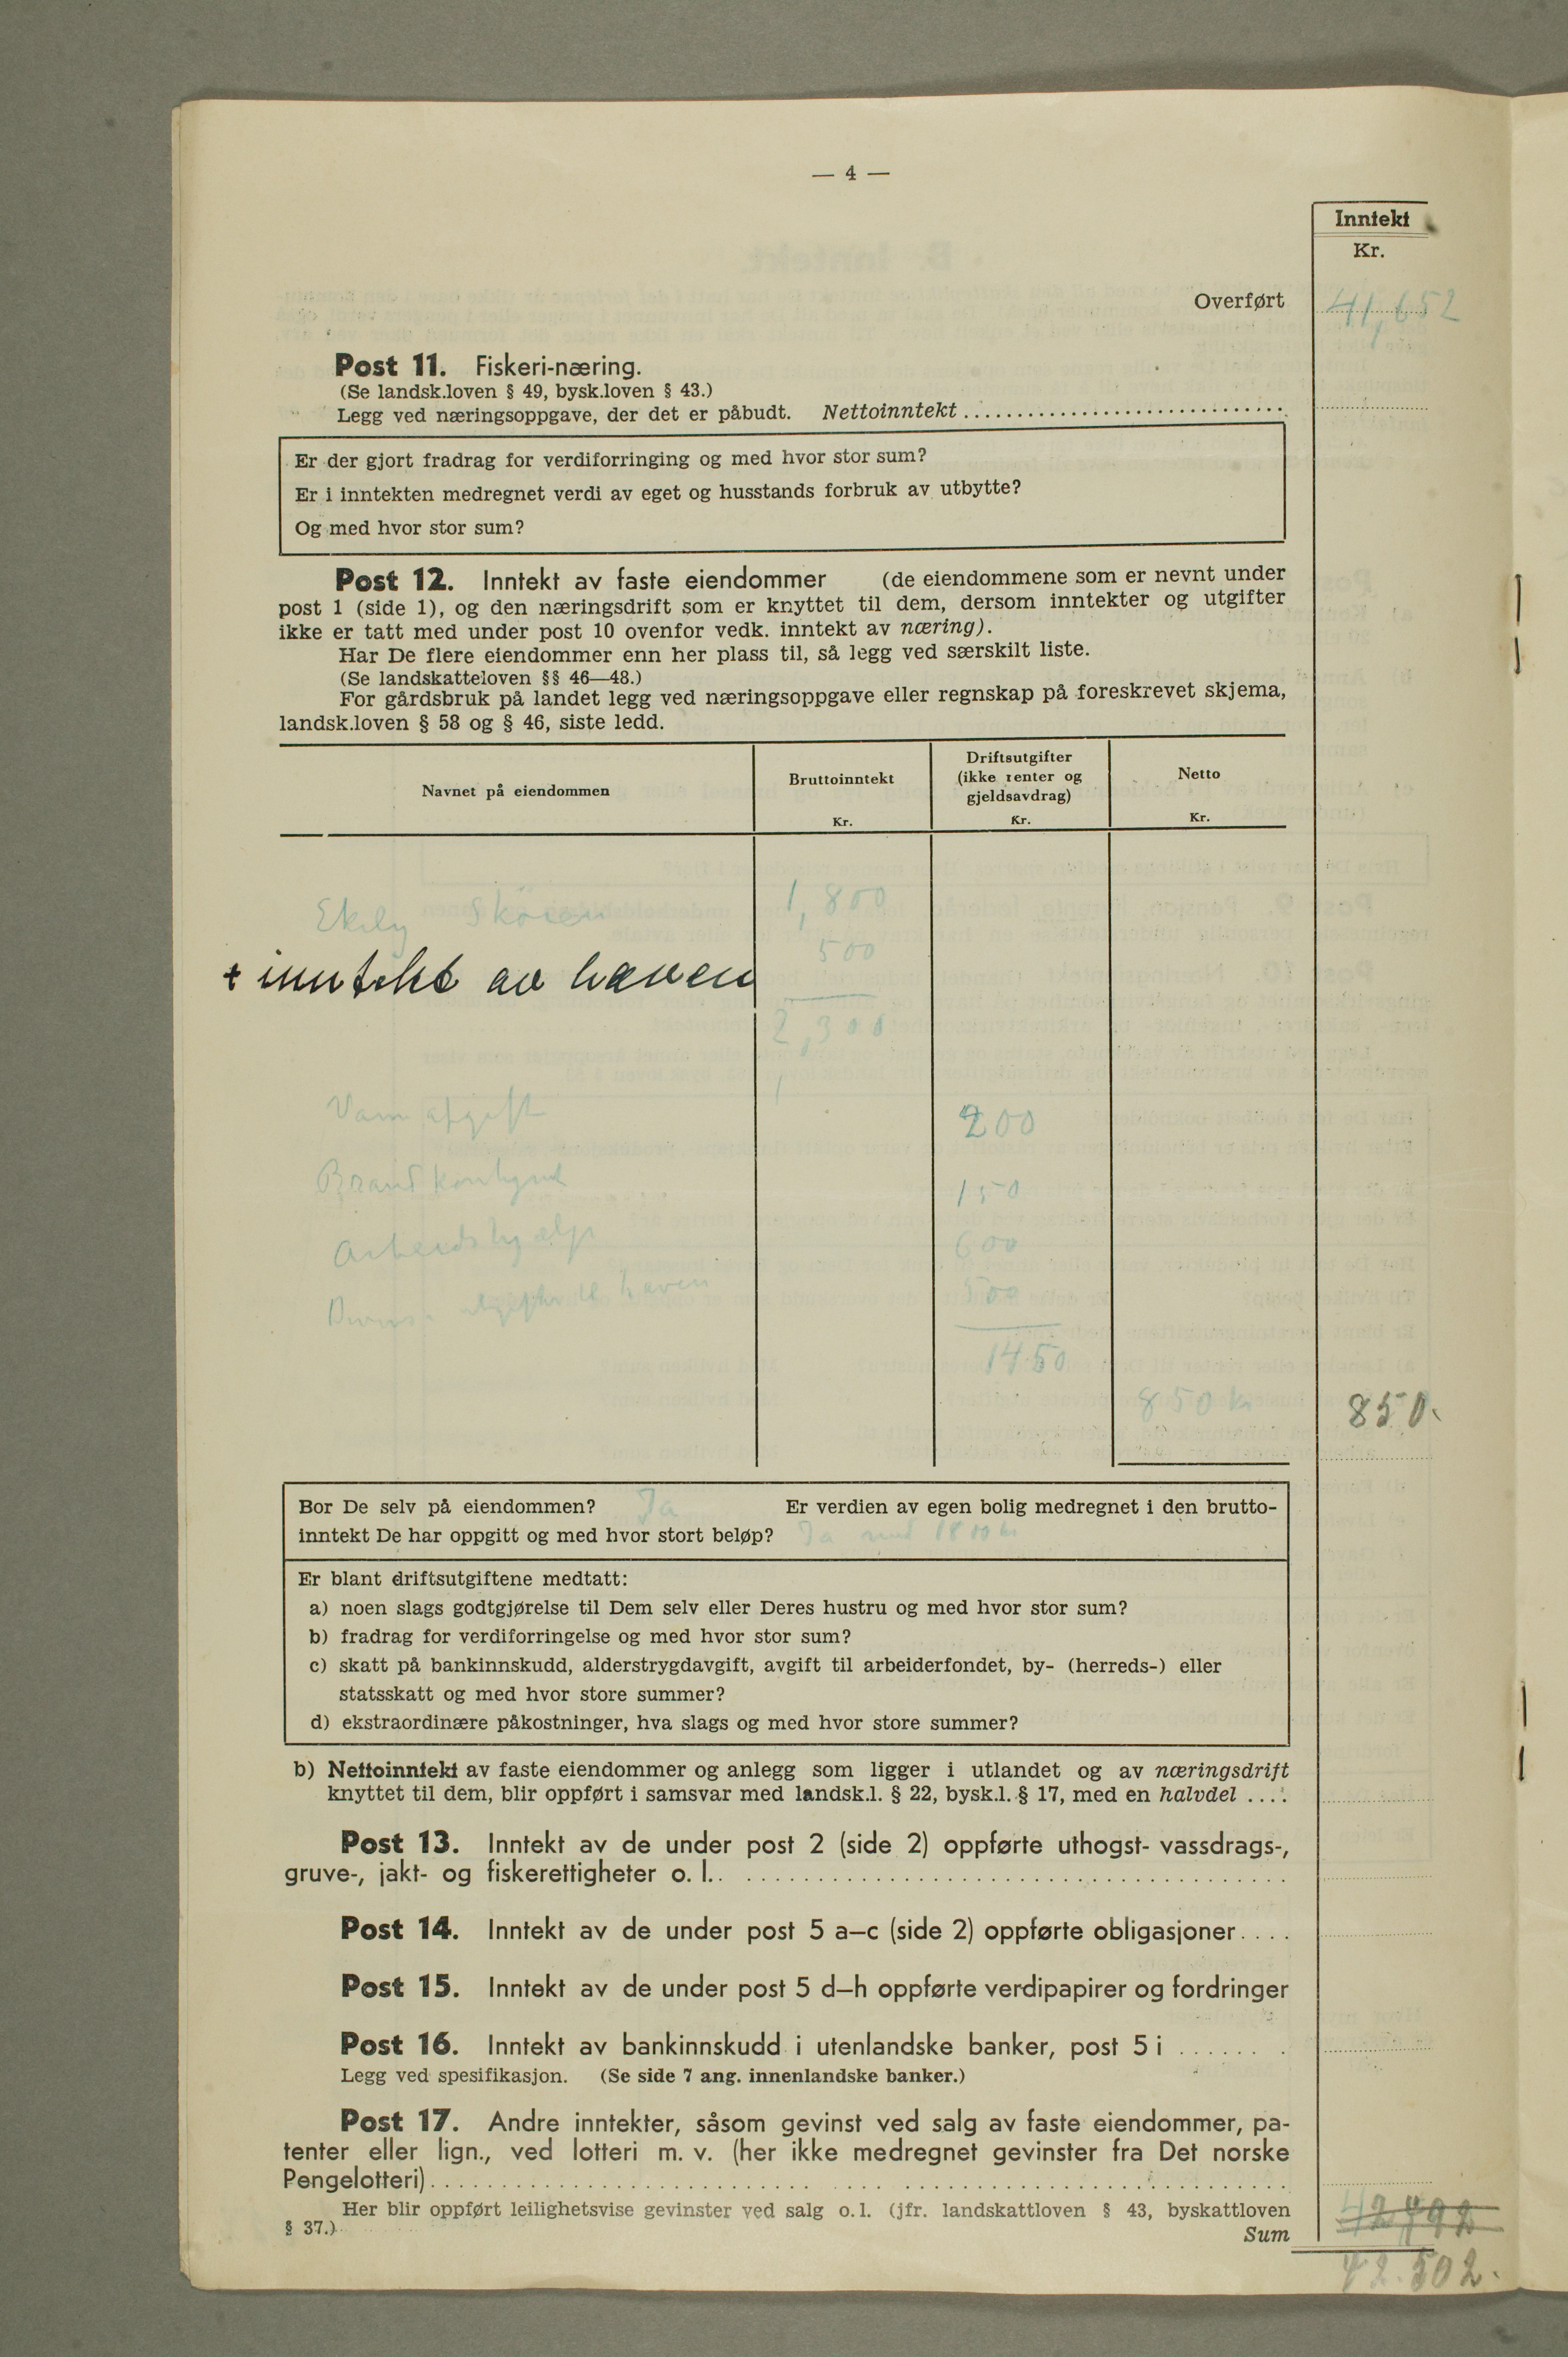 — 4 —
Inntekt
Kr.
Overført 41,652
Post 11. Fiskeri-næring.
(Se landsk.loven § 49, bysk.loven § 43.)
Legg ved næringsoppgave, der det er påbudt. Nettoinntekt ..............................
Er der gjort fradrag for verdiforringing og med hvor stor sum?
Er i inntekten medregnet verdi av eget og husstands forbruk av utbytte?
Og med hvor stor sum?
Post 12. Inntekt av faste eiendommer (de eiendommene som er nevnt under
post 1 (side 1), og den næringsdrift som er knyttet til dem, dersom inntekter og utgifter
ikke er tatt med under post 10 ovenfor vedk. inntekt av næring).
Har De flere eiendommer enn her plass til, så legg ved særskilt liste.
(Se landskatteloven §§ 46—48.)
For gårdsbruk på landet legg ved næringsoppgave eller regnskap på foreskrevet skjema,
landsk.loven § 58 og § 46, siste ledd.
Navnet på eiendommen
Bruttoinntekt
Kr.
Driftsutgifter
(ikke renter og
gjeldsavdrag)
Kr.
Netto
Kr.
Ekely Skøien 1,800
500
+ inntekt av haven
2,300
Vannafgift 200
Brandkontingent 150
Arbeidshjælp 600
Diverse utgifter til haven 500
1450
850 kr 850.
Bor De selv på eiendommen? Ja Er verdien av egen bolig medregnet i den brutto-
inntekt De har oppgitt og med hvor stort beløp? Ja med 1800 kr
Er blant driftsutgiftene medtatt:
a) noen slags godtgjørelse til Dem selv eller Deres hustru og med hvor stor sum?
b) fradrag for verdiforringelse og med hvor stor sum?
c) skatt på bankinnskudd, alderstrygdavgift, avgift til arbeiderfondet, by- (herreds-) eller
statsskatt og med hvor store summer?
d) ekstraordinære påkostninger, hva slags og med hvor store summer?
b) Nettoinntekt av faste eiendommer og anlegg som ligger i utlandet og av næringsdrift
knyttet til dem, blir oppført i samsvar med landsk.l. § 22, bysk.l. § 17, med en halvdel ....
Post 13. Inntekt av de under post 2 (side 2) oppførte uthogst- vassdrags-,
gruve-, jakt- og fiskerettigheter o. l. ......................................
Post 14. Inntekt av de under post 5 a—c (side 2) oppførte obligasjoner ....
Post 15. Inntekt av de under post 5 d—h oppførte verdipapirer og fordringer
Post 16. Inntekt av bankinnskudd i utenlandske banker, post 5 i .......
Legg ved spesifikasjon. (Se side 7 ang. innenlandske banker.)
Post 17. Andre inntekter, såsom gevinst ved salg av faste eiendommer, pa-
tenter eller lign., ved lotteri m. v. (her ikke medregnet gevinster fra Det norske
Pengelotteri) ..........................................................
Her blir oppført leilighetsvise gevinster ved salg o. l. (jfr. landskattloven § 43, byskattloven
§ 37.)
Sum
42.502.